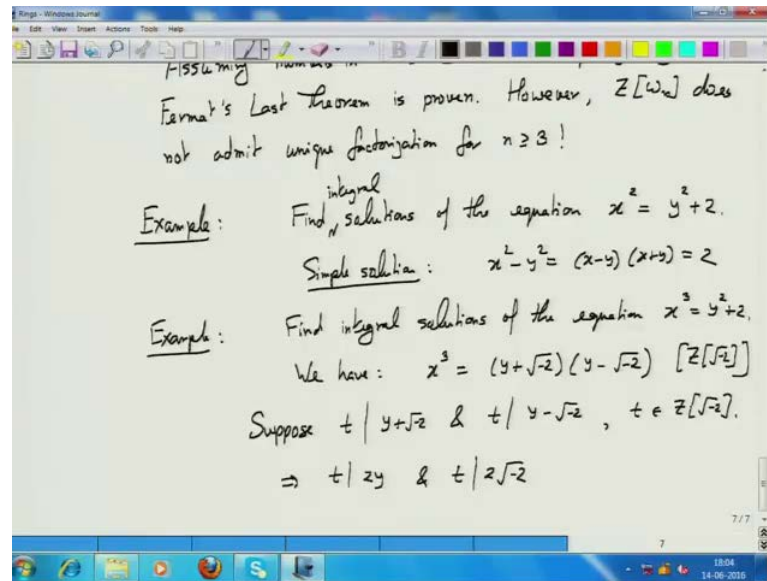 Rings - Windows Journal
Edit View Insert Actions Tools Help
Assuming
Fermat's Last Theorem is proven. However, Z[ωₙ] does
not admit unique factorization for n ≥ 3!
Example: Find integral solutions of the equation x² = y² + 2.
Simple solution: x² - y² = (x-y) (x+y) = 2
Example: Find integral solutions of the equation x³ = y² + 2.
We have: x³ = (y + √-2) (y - √-2) [Z[√-2]]
Suppose t | y + √-2 & t | y - √-2, t ∈ Z[√-2].
⇒ t | 2y & t | 2√-2
7/7
7
18:04
14-06-2016